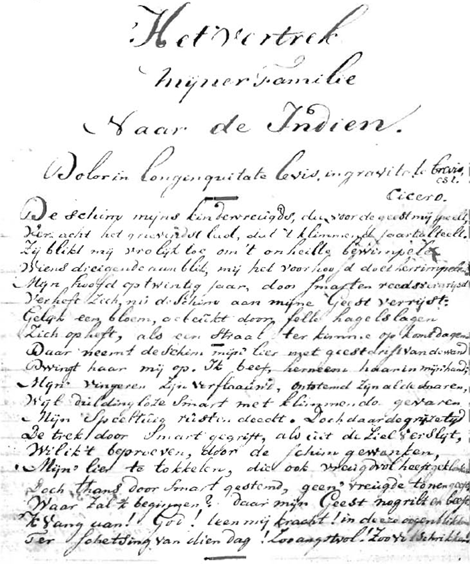 Het vertrek
Mijner Familie
Naar de Indien.
Dolor in longenquitate levis, in gravitate brevis
est.
Cicero.
De schim mijns kinderv , die voor de geest mij speelt,
acht het lied, dat 't klimmend jaartal teelt
Zij blikt mij vrolijk toe, om 't onheil te
Wiens dreigende aanblik, mij het voorhoofd doet
Mijn hoofd op twintig jaar, door smarten reeds vergrijsd
Verheft zich, nu de schim aan mijne Geest verrijst:
Gelijk een bloem, gebukt door, felle hagelslagen
Zich opheft, als een Straal ter kimme op komt dagen
Daar neemt de schim mijn lier met geestdrift van de wand
Dwingt haar mij op. Ik beef, herneem haar in mijn hand,
Mijn vingeren zijn verflaauwd, ontstemd zijn al de snaren,
Wijl duldingloze Smart met klimmende gevaren
Mijn Speeltuig rusten deedt. Doch daar de grijze tijd
De trek door Smart gegrift, als uit de Ziel verslijt,
Wil ik 't beproeven, door de schim
Mijn lier te tokkelen, die ook vreugdvol heeft
Doch thans door Smart gestemd, geen vreugde tonen geeft
Waar zal 'k beginnen? daar mijn Geest nog rilt en beeft
'k Vang aan! God! leen mij kracht! in deze oogenblikken
Ter schetsing van dien dag! Zoo angstvol! Zoo vol schrikken